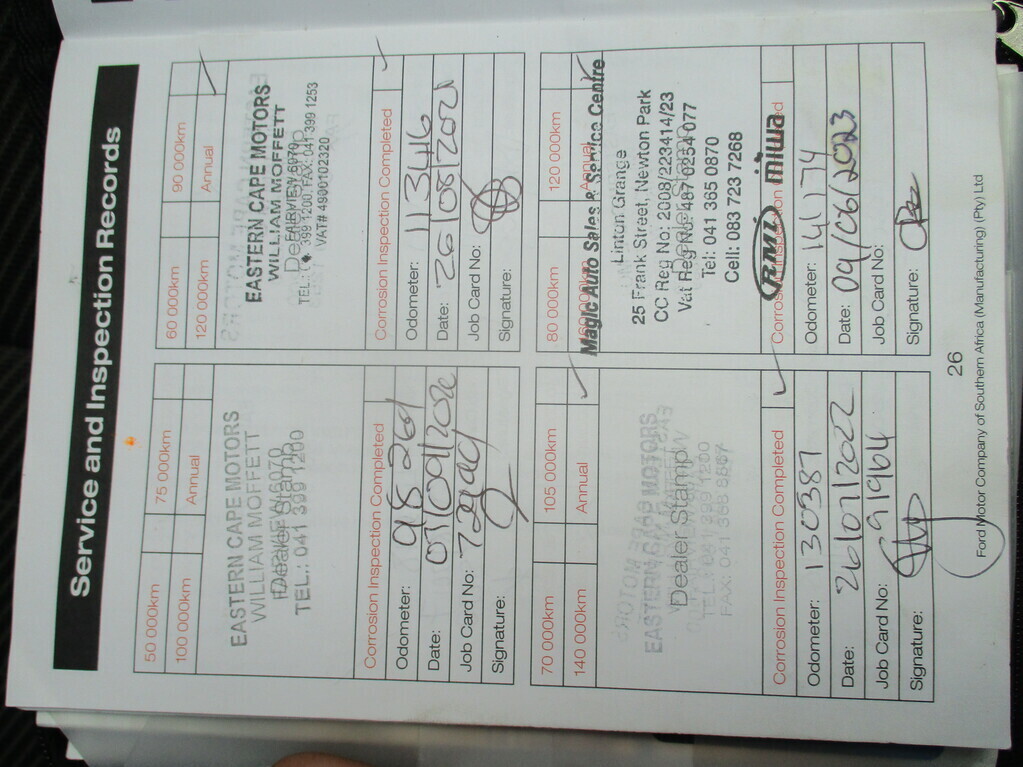 Service and Inspection Records
50 000km
75 000km
100 000km
Annual
EASTERN CAPE MOTORS
WILLIAM MOFFETT
Dealer Stamp
TEL.: 041 399 1200
Corrosion Inspection Completed
Odometer: 98 269
Date:
Job Card No:
Signature:
60 000km
90 000km
120 000km
Annual
EASTERN CAPE MOTORS
WILLIAM MOFFETT
FAIRVIEW 6070
Dealer Stamp
TEL.: 041 399 1200 FAX: 041 399 1253
VAT# 4900102320
Corrosion Inspection Completed
Odometer: 113416
Date: 26/08/2021
Job Card No:
Signature:
70 000km
105 000km
140 000km
Annual
EASTERN CAPE MOTORS
Dealer Stamp
Corrosion Inspection Completed
Odometer: 130387
Date: 26/07/2022
Job Card No: G19464
Signature:
80 000km
120 000km
Annual
Magic Auto Sales & Service Centre
Linton Grange
25 Frank Street, Newton Park
CC Reg No: 2008/223414/23
Vat Reg No: 487 0254 077
Dealer Stamp
Tel: 041 365 0870
Cell: 083 723 7268
RMI miwa
Corrosion Inspection Completed
Odometer: 141174
Date: 09/06/2023
Job Card No:
Signature:
26
Ford Motor Company of Southern Africa (Manufacturing) (Pty) Ltd